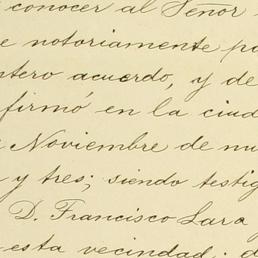 conocer al Señor
notoriamente po
ntero acuerdo, y de
firmó en la ciud
Noviembre de mi
y tres; siendo testig
D. Francisco Lara
esta vecindad; d